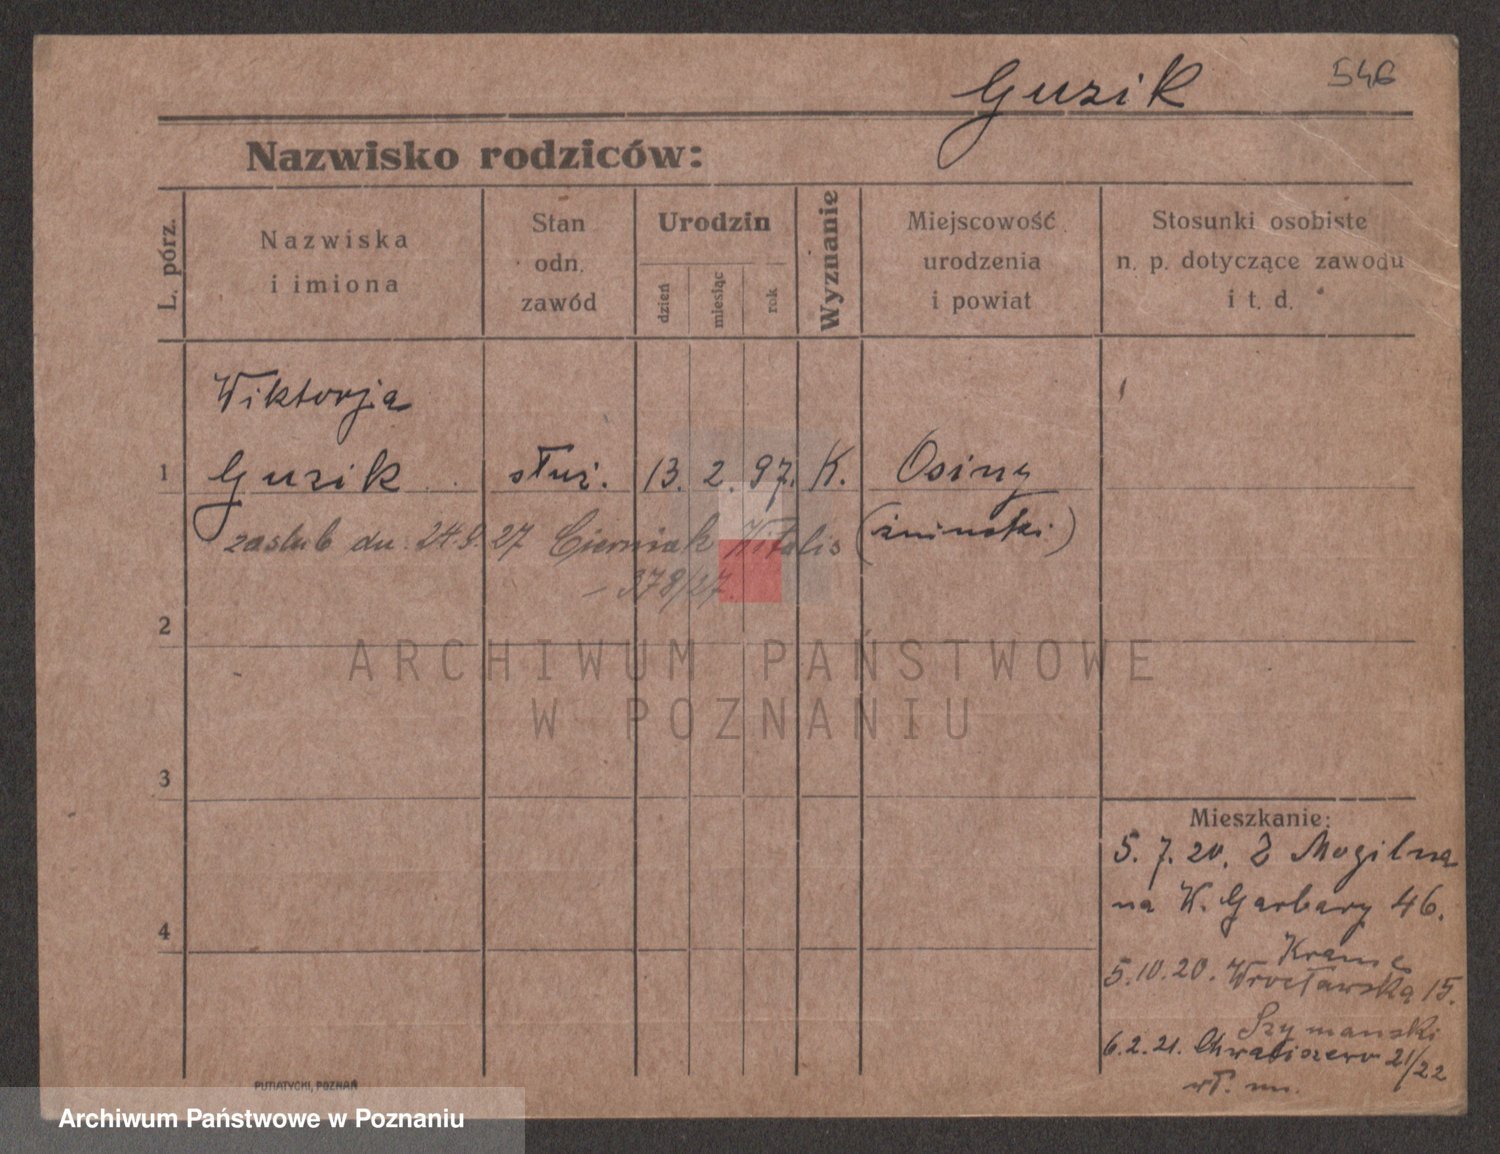 Guzik 546
Nazwisko rodziców:
L. pórz.
Nazwiska
i imiona
Stan
odn.
zawód
Urodzin
dzień
miesiąc
rok
Wyznanie
Miejscowość
urodzenia
i powiat
Stosunki osobiste
n. p. dotyczące zawodu
i t. d.
Wiktorja
1 Guzik służ. 13. 2. 97. K. Osiny
(żniński)
zaślub dn. 24.9.27 Cierniak Witalis
378/27.
2
ARCHIWUM PAŃSTWOWE
W POZNANIU
3
Mieszkanie:
5. 7. 20. Z Mogilna
na W. Garbary 46.
4
5.10.20. Wrocławska 15.
Szymanski
6.2.21. Chwaliszewo 21/22
wł. nn.
PUTIATYCKI, POZNAŃ
Archiwum Państwowe w Poznaniu